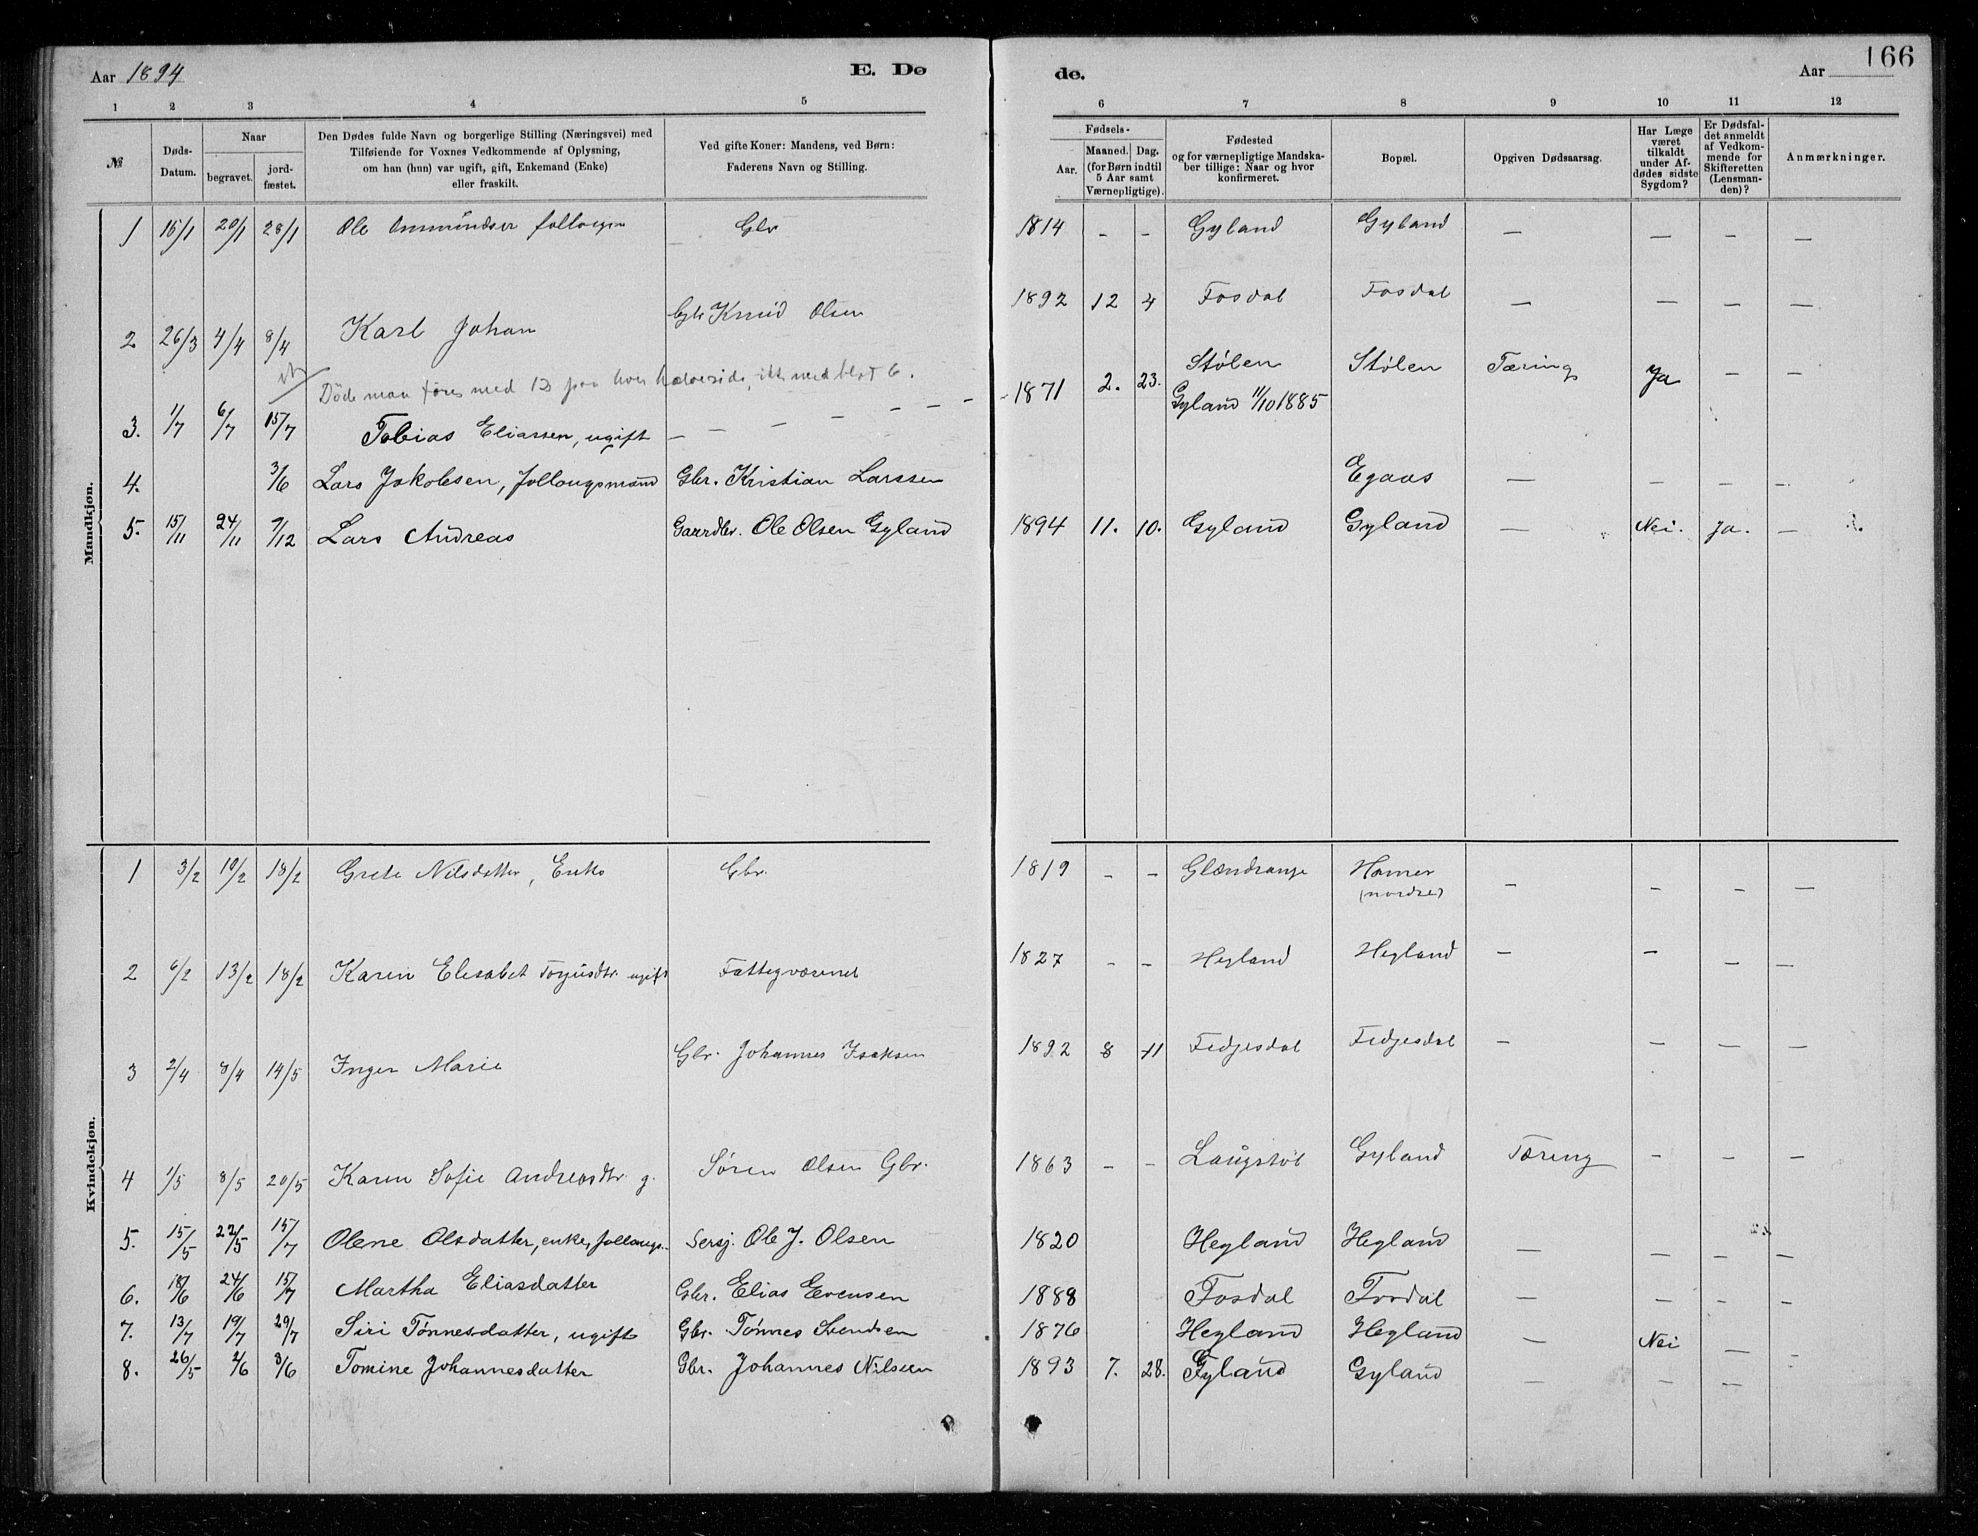 Aar 1894
E. Dø
de.
Aar
166
1 2 3 4 5 6 7 8 9 10 11 12
№
Døds-
Datum.
Naar
begravet.
jord-
fæstet.
Den Dødes fulde Navn og borgerlige Stilling (Næringsvei) med
Tilføiende for Voxnes Vedkommende af Oplysning,
om han (hun) var ugift, gift, Enkemand (Enke)
eller fraskilt.
Ved gifte Koner: Mandens, ved Børn:
Faderens Navn og Stilling.
Fødsels-
Aar.
Maaned. Dag.
(for Børn indtil
5 Aar samt
Værnepligtige).
Fødested
og for værnepligtige Mandska-
ber tillige: Naar og hvor
konfirmeret.
Bopæl.
Opgiven Dødsaarsag.
Har Læge
været
tilkaldt
under Af-
dødes sidste
Sygdom?
Er Dødsfal-
det anmeldt
af Vedkom-
mende for
Skifteretten
(Lensman-
den)?
Anmærkninger.
Mandkjøn.
1 15/1 20/1 28/1 Ole Ommundsen follougsm Gbr 1814 - - Gyland Gyland — — - —
2 26/3 4/4 8/4 Karl Johan Gbr Knud Olsen 1892 12 4 Fosdal Fosdal — — — —
Døde maa føres med 12 paa hver halvside, ikke med blot 6.
3. 1/7 6/7 15/7 Tobias Eliassen, ugift — — — — — — — 1871 2. 23. Stølen Stølen Tæring Ja — —
Gyland 11/10 1885
4. 3/6 Lars Jakobsen, follougsmand Gbr. Kristian Larssen Egaas — — — -
5. 15/11 24/11 7/12 Lars Andreas Gaardbr. Ole Olsen Gyland 1894 11. 10. Gyland Gyland — Nei. Ja. —
Kvindekjøn.
1 3/2 10/2 18/2 Grete Nilsdatter, Enke Gbr. 1819 - - Glændrange Hamer — — — —
(nordre)
2 6/2 13/2 18/2 Karen Elesabet Torjusdtr. ugift Fattigvæsenet 1827 - - Hegland Hegland — — — —
3 2/4 8/4 14/5 Inger Marie Gbr. Johannes Isaksen 1892 8 11 Fedjesdal Fedjesdal — — — —
4 1/5 8/5 20/5 Karen Sofie Andreasdtr. g. Søren Olsen Gbr. 1863 - - Laugstøl Gyland Tæring — — —
5. 15/5 22/5 15/7 Olene Olsdatter, enke, follougs. Sersj. Ole J. Olsen 1820 Hegland Hegland — — — —
6. 18/6 24/6 15/7 Martha Eliasdatter Gbr. Elias Evensen 1888 Fosdal Fosdal — — — —
7. 13/7 19/7 29/7 Siri Tønnesdatter, ugift Gbr. Tønnes Svendsen 1876 Hegland Hegland — Nei — -
8. 26/5 2/6 3/6 Tomine Johannesdatter Gbr. Johannes Nilsen 1893 7. 28. Gyland Gyland — — —